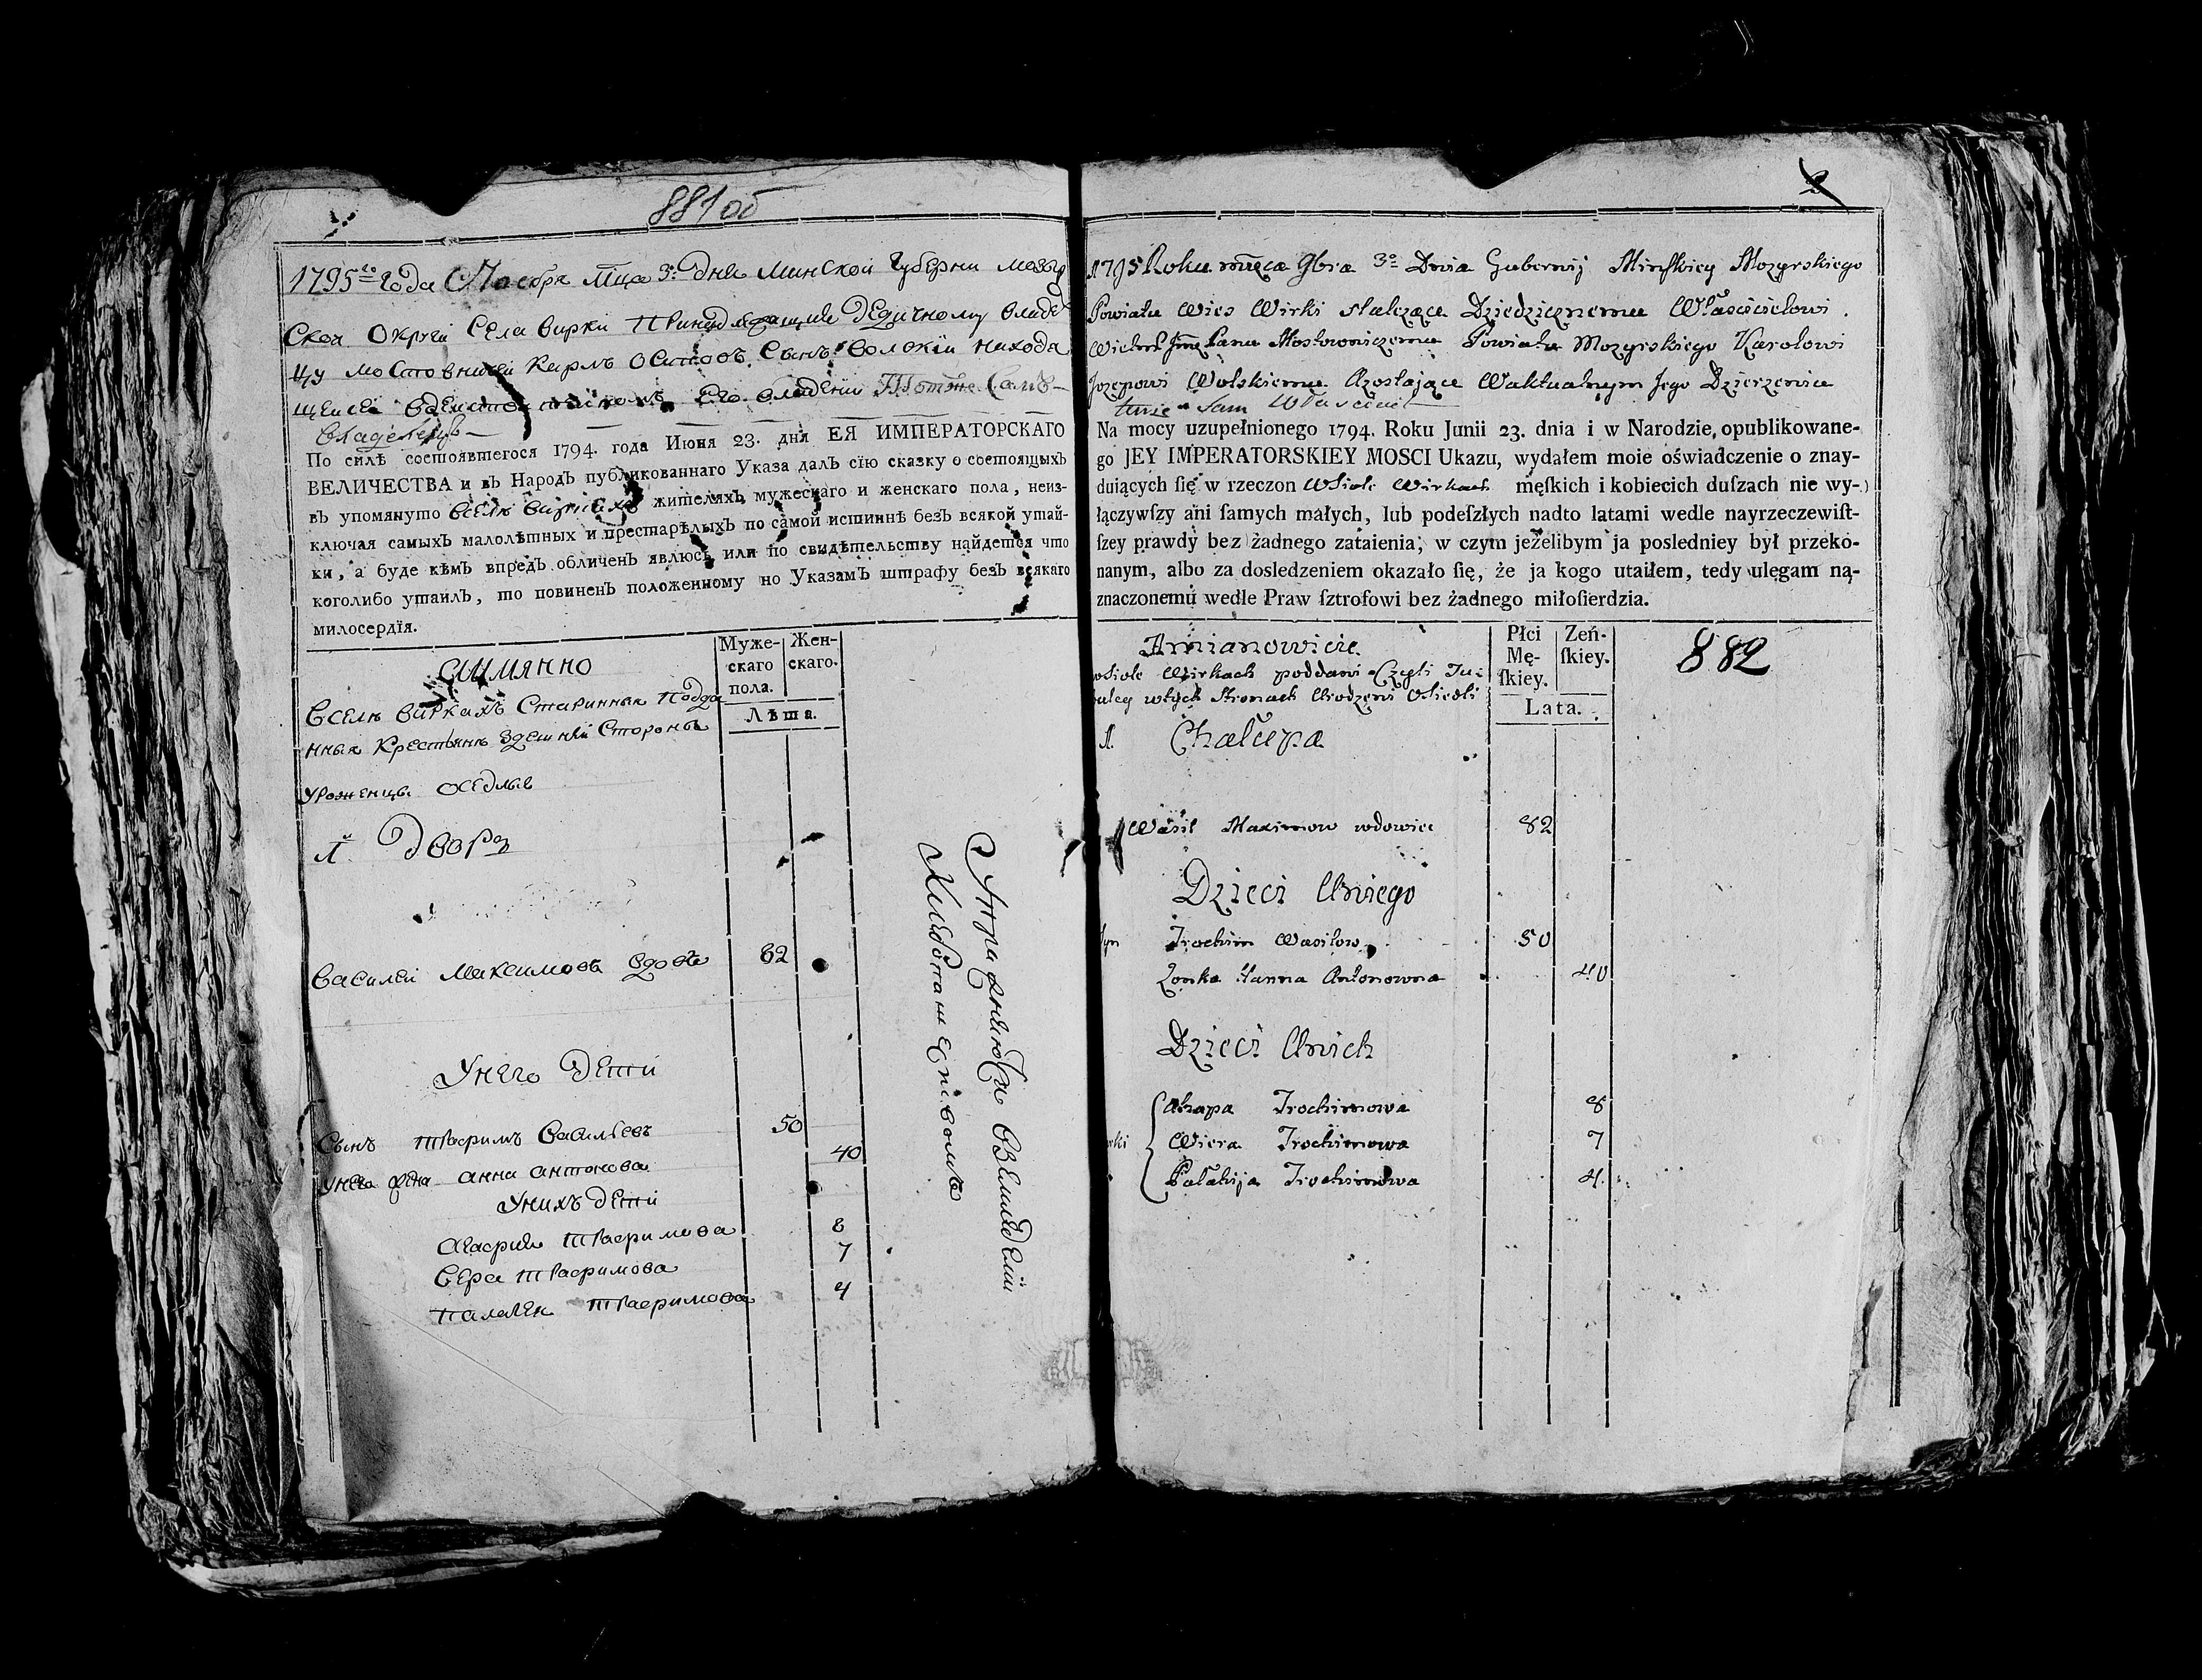 881об
1795го Года Ноября Мца 3: Дня Минской Губерни мозыр
ской Округи Села вирки Принадлежащии Дедичному владел
цу мостовничей Карлъ Осиповъ Сынъ Волскiи находя
щейсе его владении Тотже Самъ
владелецъ
По силѣ состоявшегося 1794. года Июня 23. дня ЕЯ ИМПЕРАТОРСКАГО
ВЕЛИЧЕСТВА и въ Народъ публикованнаго Указа далъ сїю сказку о состоящыхъ
въ упомянуто селе виркахъ жителяхъ мужескаго и женскаго пола, неиз-
ключая самыхъ малолѣтныхъ и престарѣлыхъ по самой истиннѣ безъ всякой утай-
ки, а буде кѣмъ впредъ обличенъ явлюсь или по свидѣтельству найдется что
коголибо утаилъ, то повиненъ положенному но Указамъ штрафу безъ всякаго
милосердїя.
Муже-скаго пола.
Жен-скаго.
Лѣта.
Имянно
Вселе виркахъ Старинныя Подда
нныя Крестьяне здешней Стороны
Уроженцы оседлыя
1й Двора
Василей Максимовъ вдовъ 82
Унего Дети
Сынъ Трафимъ Васильевъ 50
Унего жена Анна антонова 40
Унихъ дети
Агафия Трафимова 8
Вера Трафимова 7
Палагея Трафимова 4
Упражняютца Вземледелiи
Хлебопашествомъ
1795 Roku mca 9bra 3o Dnia Gubernij Minskiey Mozyrskiego
Powiatu Wies Wirki należące Dziedzicznemu Właścicielowi
Wielm Jmc Panu Mostowniczemu Powiatu Mozyrskiego Karolowi
Jozepowi Wolskiemu Azostające Waktualnym Jego Dzierzeniu
tenże Sam Własciciel
Na mocy uzupełnionego 1794. Roku Junii 23. dnia i w Narodzie, opublikowane-
go JEY IMPERATORSKIEY MOSCI Ukazu, wydałem moie oświadczenie o znay-
duiących ſię w rzeczon Wsiole Wirkach męſkich i kobiecich duſzach nie wy-
łączywſzy ani ſamych małych, lub podeſzłych nadto latami wedle nayrzeczewiſt-
ſzey prawdy bez żadnego zataienia, w czym jeżelibym ja posledniey był przeko-
nanym, albo za dosledzeniem okazało ſię, że ja kogo utaiłem, tedy ulęgam ną-
znaczonemu wedle Praw ſztrofowi bez żadnego miłoſierdzia.
Płci Mę-ſkiey.
Zeń-ſkiey.
Lata.
882
Amianowicie
wsiole Wirkach poddani Czyli Tu
wtych Stronach Urodzeni Osiedli
1. Chałupa
Wasil Maximow wdowiec 82
Dzieci Uniego
Syn Trochim Wasilow 50
Zonka Hanna Antonowna 40
Dzieci Unich
Ahapa Trochimowa 8
Wiera Trochimowa 7
Pałahija Trochimowa 4